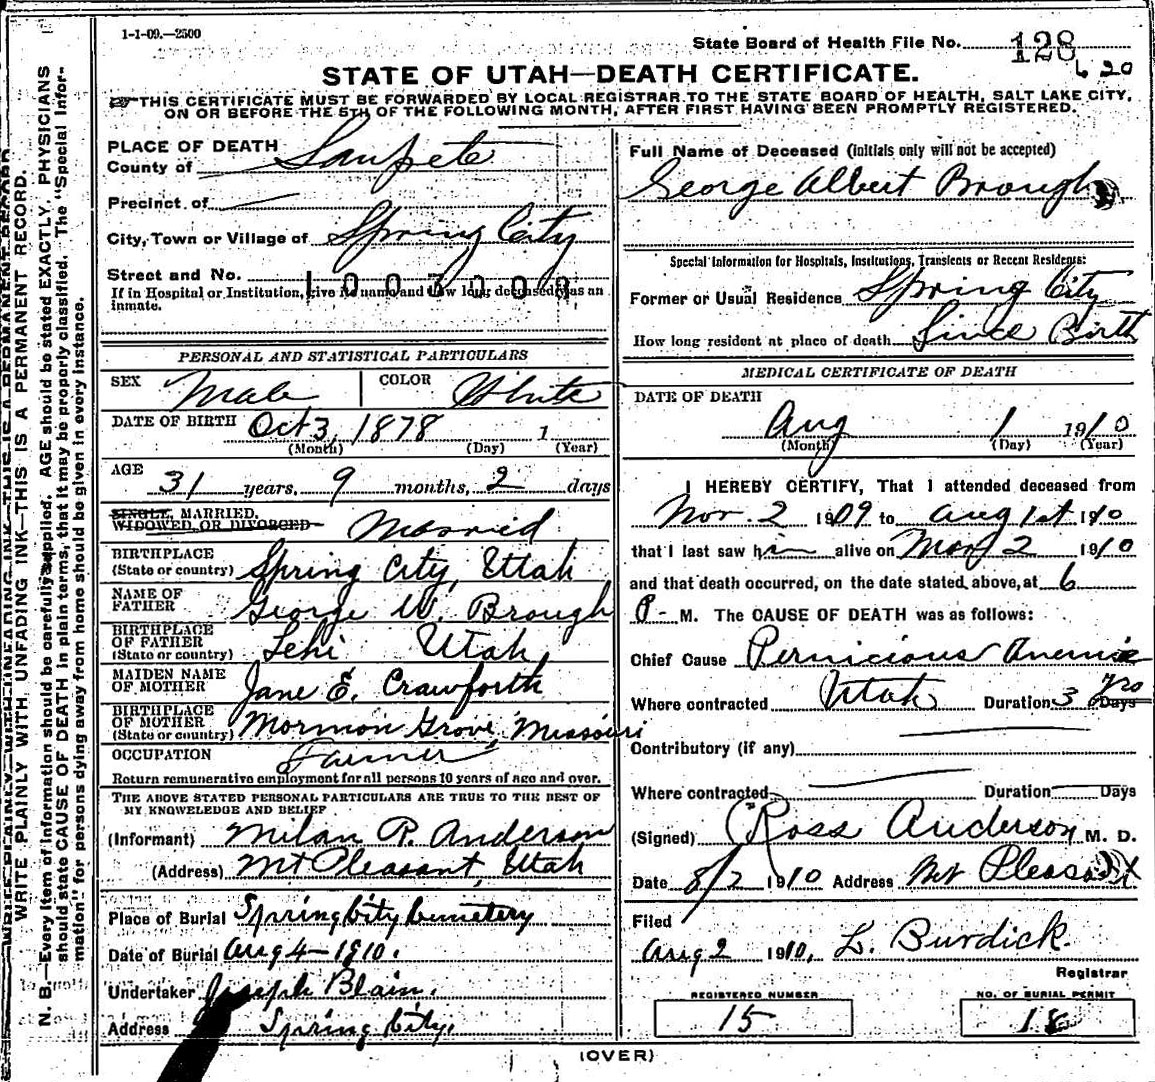 1-1-09.—2500
State Board of Health File No. 128
6 20
STATE OF UTAH—DEATH CERTIFICATE.
THIS CERTIFICATE MUST BE FORWARDED BY LOCAL REGISTRAR TO THE STATE BOARD OF HEALTH, SALT LAKE CITY,
ON OR BEFORE THE 5TH OF THE FOLLOWING MONTH, AFTER FIRST HAVING BEEN PROMPTLY REGISTERED.
WRITE PLAINLY WITH UNFADING INK—THIS IS A PERMANENT RECORD.
N. B.—Every item of information should be carefully supplied. AGE should be stated EXACTLY, PHYSICIANS
should state CAUSE OF DEATH in plain terms, that it may be properly classified. The "Special Infor-
mation" for persons dying away from home should be given in every instance.
PLACE OF DEATH
County of Sanpete
Precinct of
City, Town or Village of Spring City
Street and No. 1003000
If in Hospital or Institution, give its name and how long deceased was an
inmate.
PERSONAL AND STATISTICAL PARTICULARS
SEX Male COLOR White
DATE OF BIRTH Oct 3, 1878 1
(Month) (Day) (Year)
AGE 31 years, 9 months, 2 days
SINGLE, MARRIED,
WIDOWED OR DIVORCED Married
BIRTHPLACE
(State or country) Spring City, Utah
NAME OF
FATHER George W. Brough
BIRTHPLACE
OF FATHER
(State or country) Lehi Utah
MAIDEN NAME
OF MOTHER Jane E. Crawforth
BIRTHPLACE
OF MOTHER
(State or country) Mormon Grove, Missouri
OCCUPATION Farmer
Return remunerative employment for all persons 10 years of age and over.
THE ABOVE STATED PERSONAL PARTICULARS ARE TRUE TO THE BEST OF
MY KNOWLEDGE AND BELIEF
(Informant) Milan R. Anderson
(Address) Mt Pleasant, Utah
Place of Burial Spring City Cemetery
Date of Burial Aug 4—1910.
Undertaker Joseph Blain.
Address Spring City.
Full Name of Deceased (initials only will not be accepted)
George Albert Brough
Special Information for Hospitals, Institutions, Transients or Recent Residents:
Former or Usual Residence Spring City
How long resident at place of death Since Birth
MEDICAL CERTIFICATE OF DEATH
DATE OF DEATH
Aug 1 1910
(Month) (Day) (Year)
I HEREBY CERTIFY, That I attended deceased from
Nov. 2 1909 to Aug 1st 1910
that I last saw him alive on May 2 1910
and that death occurred, on the date stated above, at 6
P- M. The CAUSE OF DEATH was as follows:
Chief Cause Pernicious Anemia
Where contracted Utah Duration 3 yrs Days
Contributory (if any)
Where contracted Duration Days
(Signed) Ross Anderson M. D.
Date 8/2 1910 Address Mt Pleasant
Filed
Aug 2 1910, L. Burdick.
Registrar
REGISTERED NUMBER
15
NO. OF BURIAL PERMIT
18
(OVER)